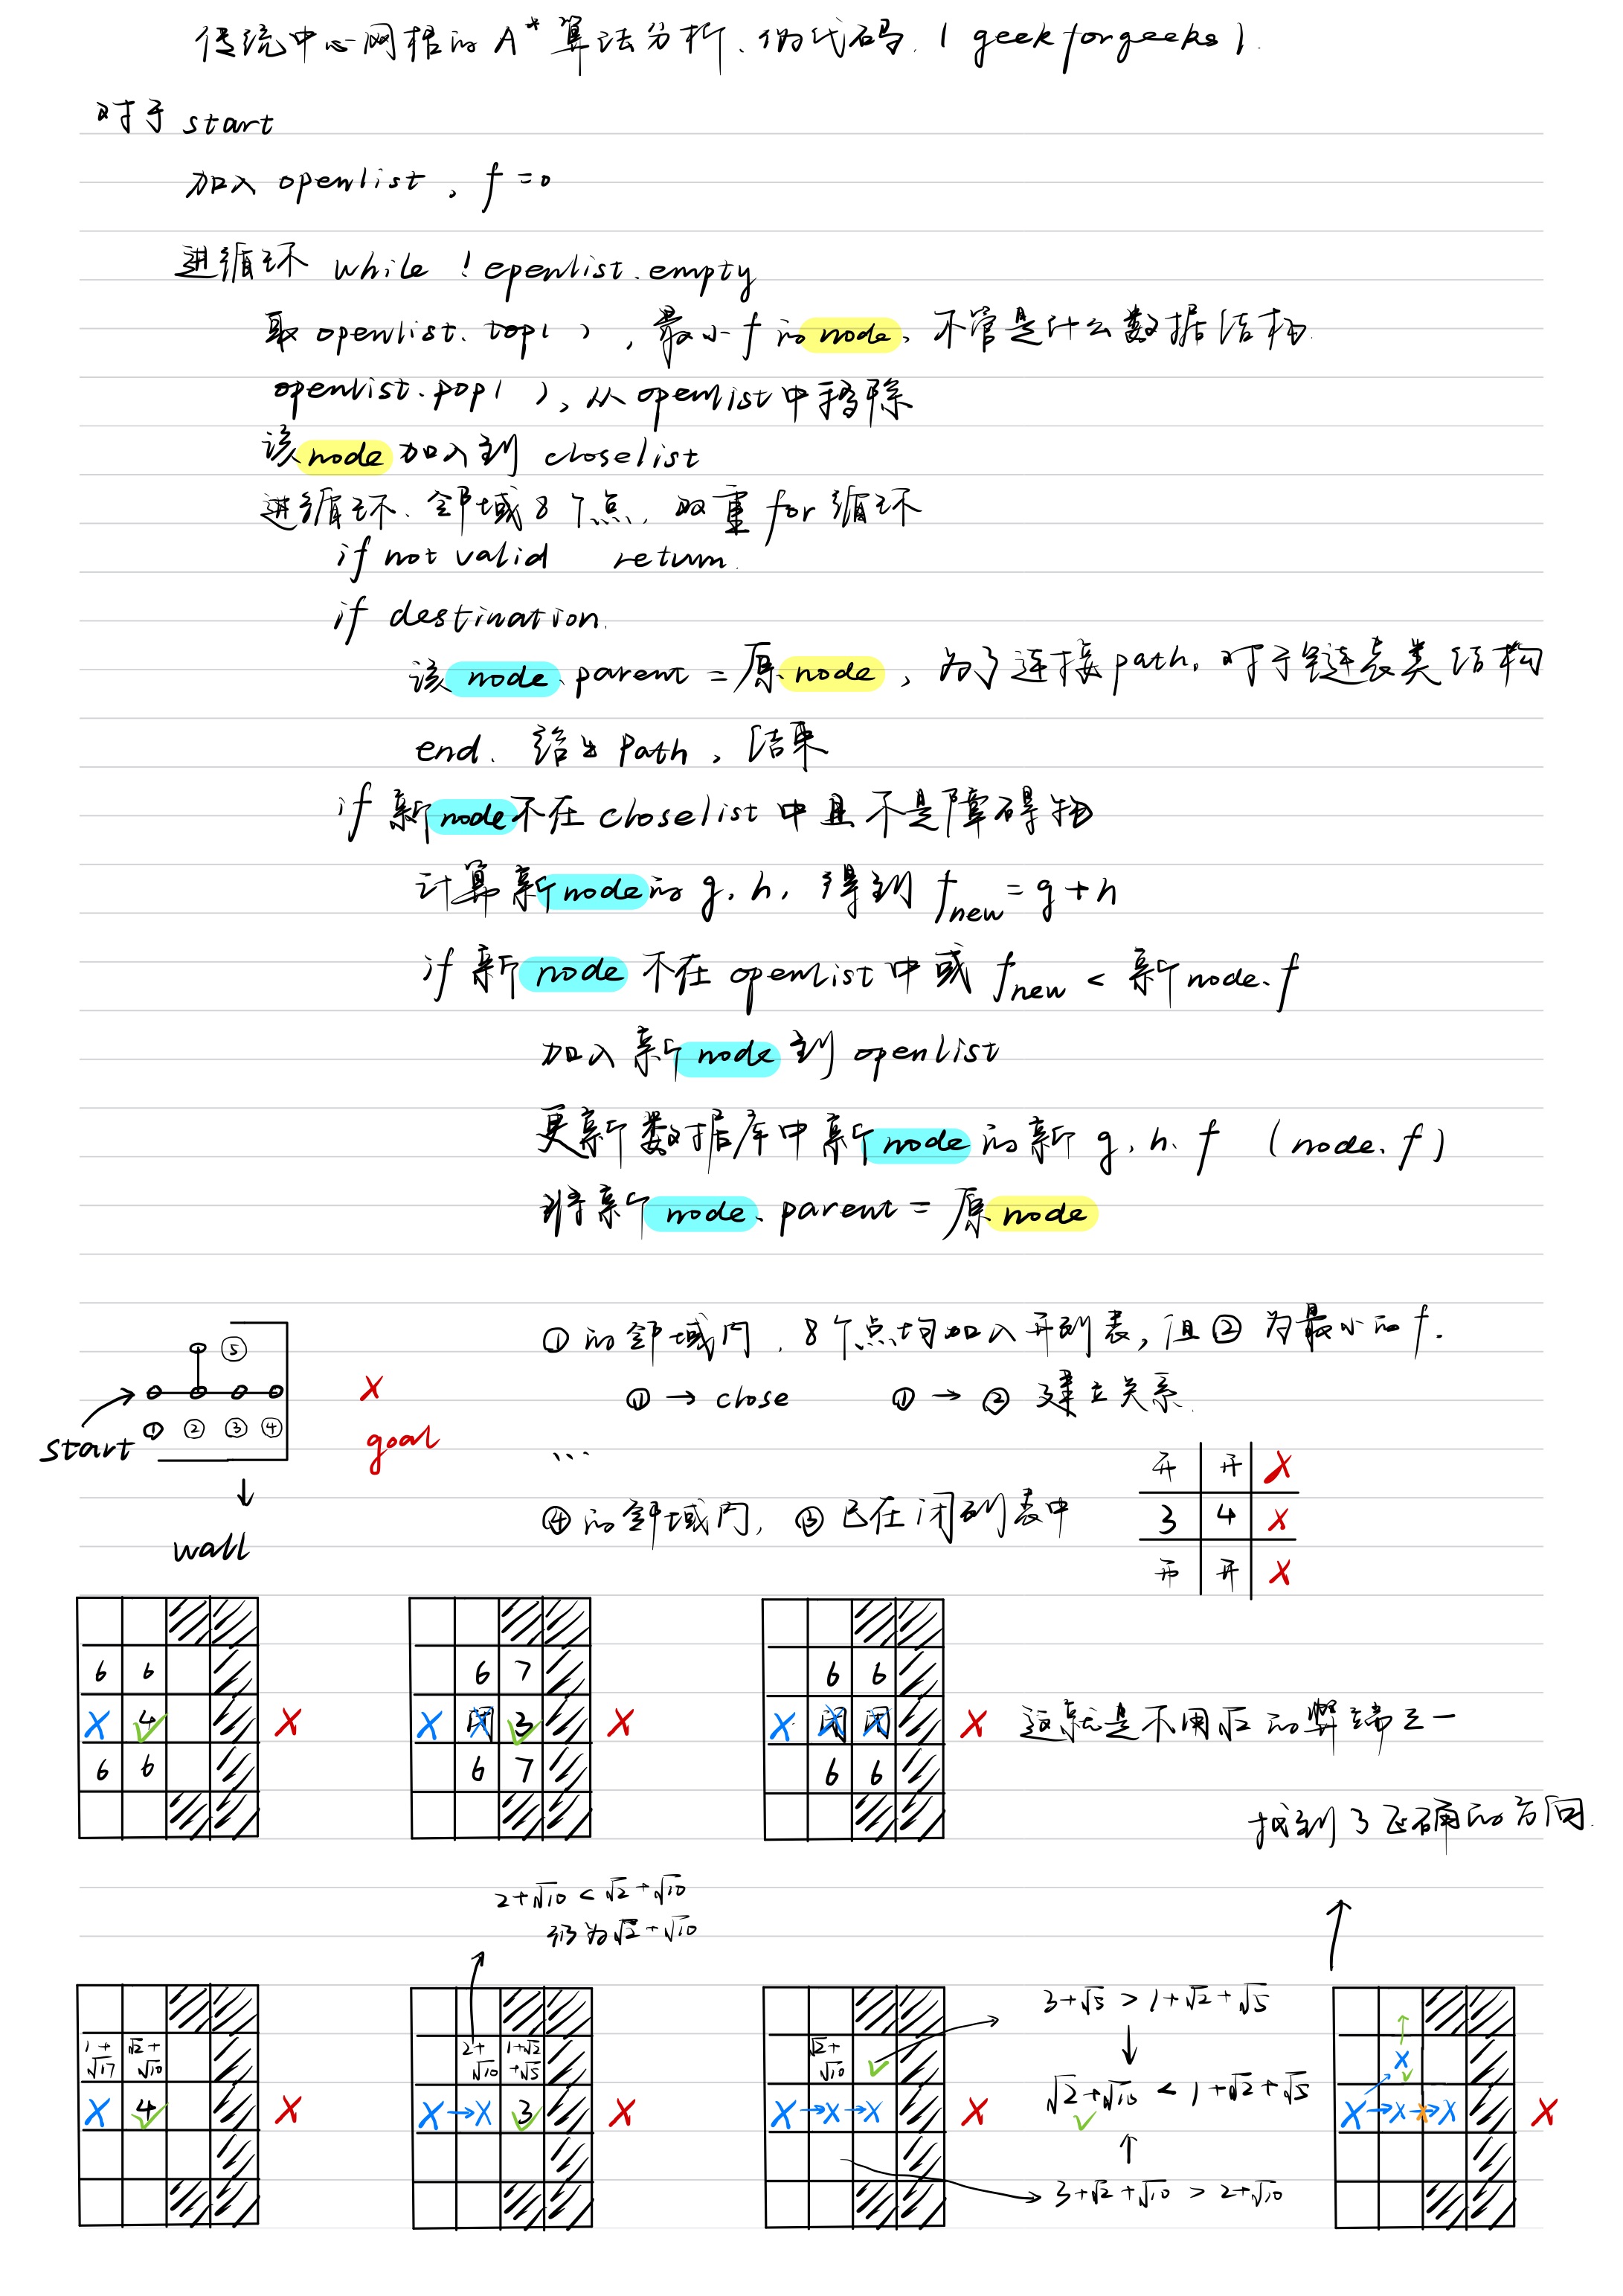 传统中心网格的 A* 算法分析、伪代码. (geekforgeeks).
对于 start
加入 openlist, f=0
进循环 while !openlist.empty
取 openlist.top(), 最小 f 的 node, 不管是什么数据结构.
openlist.pop(), 从 openlist 中移除
该 node 加入到 closelist
进循环、邻域 8 个点, 双重 for 循环
if not valid return.
if destination.
该 node.parent = 原 node, 为了连接 path, 对于链表类结构
end. 给出 Path, 结束
if 新 node 不在 closelist 中且不是障碍物
计算新 node 的 g, h, 得到 f_new = g+h
if 新 node 不在 openlist 中或 f_new < 新 node.f
加入新 node 到 openlist
更新数据库中新 node 的新 g, h, f (node.f)
将新 node.parent = 原 node
⑤
start ① ② ③ ④
X
goal
wall
① 的邻域内, 8 个点均加入开列表, 但 ② 为最小的 f.
① → close ① → ② 建立关系.
...
④ 的邻域内, ③ 已在闭列表中
开 开 X
3 4 X
开 开 X
6 6
X 4 X
6 6
6 7
X 闭 3 X
6 7
6 6
X 闭 闭 X
6 6
这就是不用 √2 的弊端之一
找到了正确的方向.
2+√10 < √2+√10
仍为 √2+√10
1+√17 √2+√10
X 4 X
2+√10 1+√2+√5
X→X 3 X
√2+√10
X→X→X X
3+√5 > 1+√2+√5
↓
√2+√10 < 1+√2+√5
↑
3+√2+√10 > 2+√10
X
X→X→X X